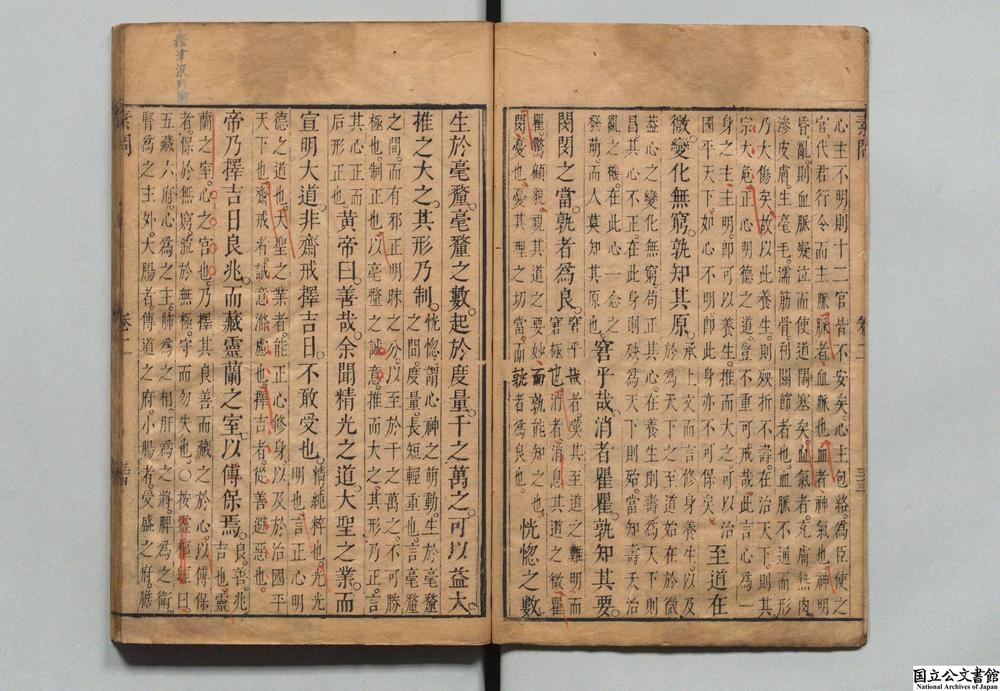 素問
卷二
心主不明則十二官皆不安矣心主包絡爲臣使之
官代君行令而主脈脈者血脈也血者神氣也神明
昏亂則血脈凝泣而使道閉塞矣血氣者充膚熱肉
滲皮膚生毫毛濡筋骨利關節者也血脈不通而形
乃大傷矣故以此養生則殀折不壽在治天下則其
宗大危正心明德之道豈不重可戒哉此言心爲一
身之主主明即可以養生推而大之可以治
國平天下如心不明即此身亦不可保矣
至道在
微變化無窮孰知其原
承上文而言修身養生以及
於爲天下之至道始在於微
蓋心之變化無窮苟正其心在養生則壽爲天下則
昌其心不正在此身則殃爲天下則殆當知壽夭治
亂之機在此心一念之
發萌而人莫知其原也
窘乎哉消者瞿瞿孰知其要
閔閔之當孰者爲良
窘乎哉者嘆其至道之難明而
窘極也消者消息其道之微瞿
瞿驚顧貌視其道之要妙而孰能知之也
閔憂也憂其理之切當而孰者爲良也
恍惚之數
生於毫釐毫釐之數起於度量千之萬之可以益大
推之大之其形乃制
恍惚謂心神之萌動生於毫釐
之間度量長短輕重也言毫釐
之間而有邪正明昧之分以至於千之萬之不可勝
極也制正也以毫釐之誠意推而大之其形乃正言
其心正而
后形正也
黃帝曰善哉余聞精光之道大聖之業而
宣明大道非齋戒擇吉日不敢受也
精純粹也光光
明也言正心明
德之道也大聖之業者能正心修身以及於治國平
天下也齋戒者誠意滌慮也擇吉者從善避惡也
帝乃擇吉日良兆而藏靈蘭之室以傳保焉
良善兆
吉也靈
蘭之室心之宮也乃擇其良善而藏之於心以傳保
者保於無窮流於無極守而勿失也○按靈樞經曰
五藏六府心爲之主肺爲之相肝爲之將脾爲之衛
腎爲之主外大腸者傳道之府小腸者受盛之府膽
素問
卷二
国立公文書館
National Archives of Japan